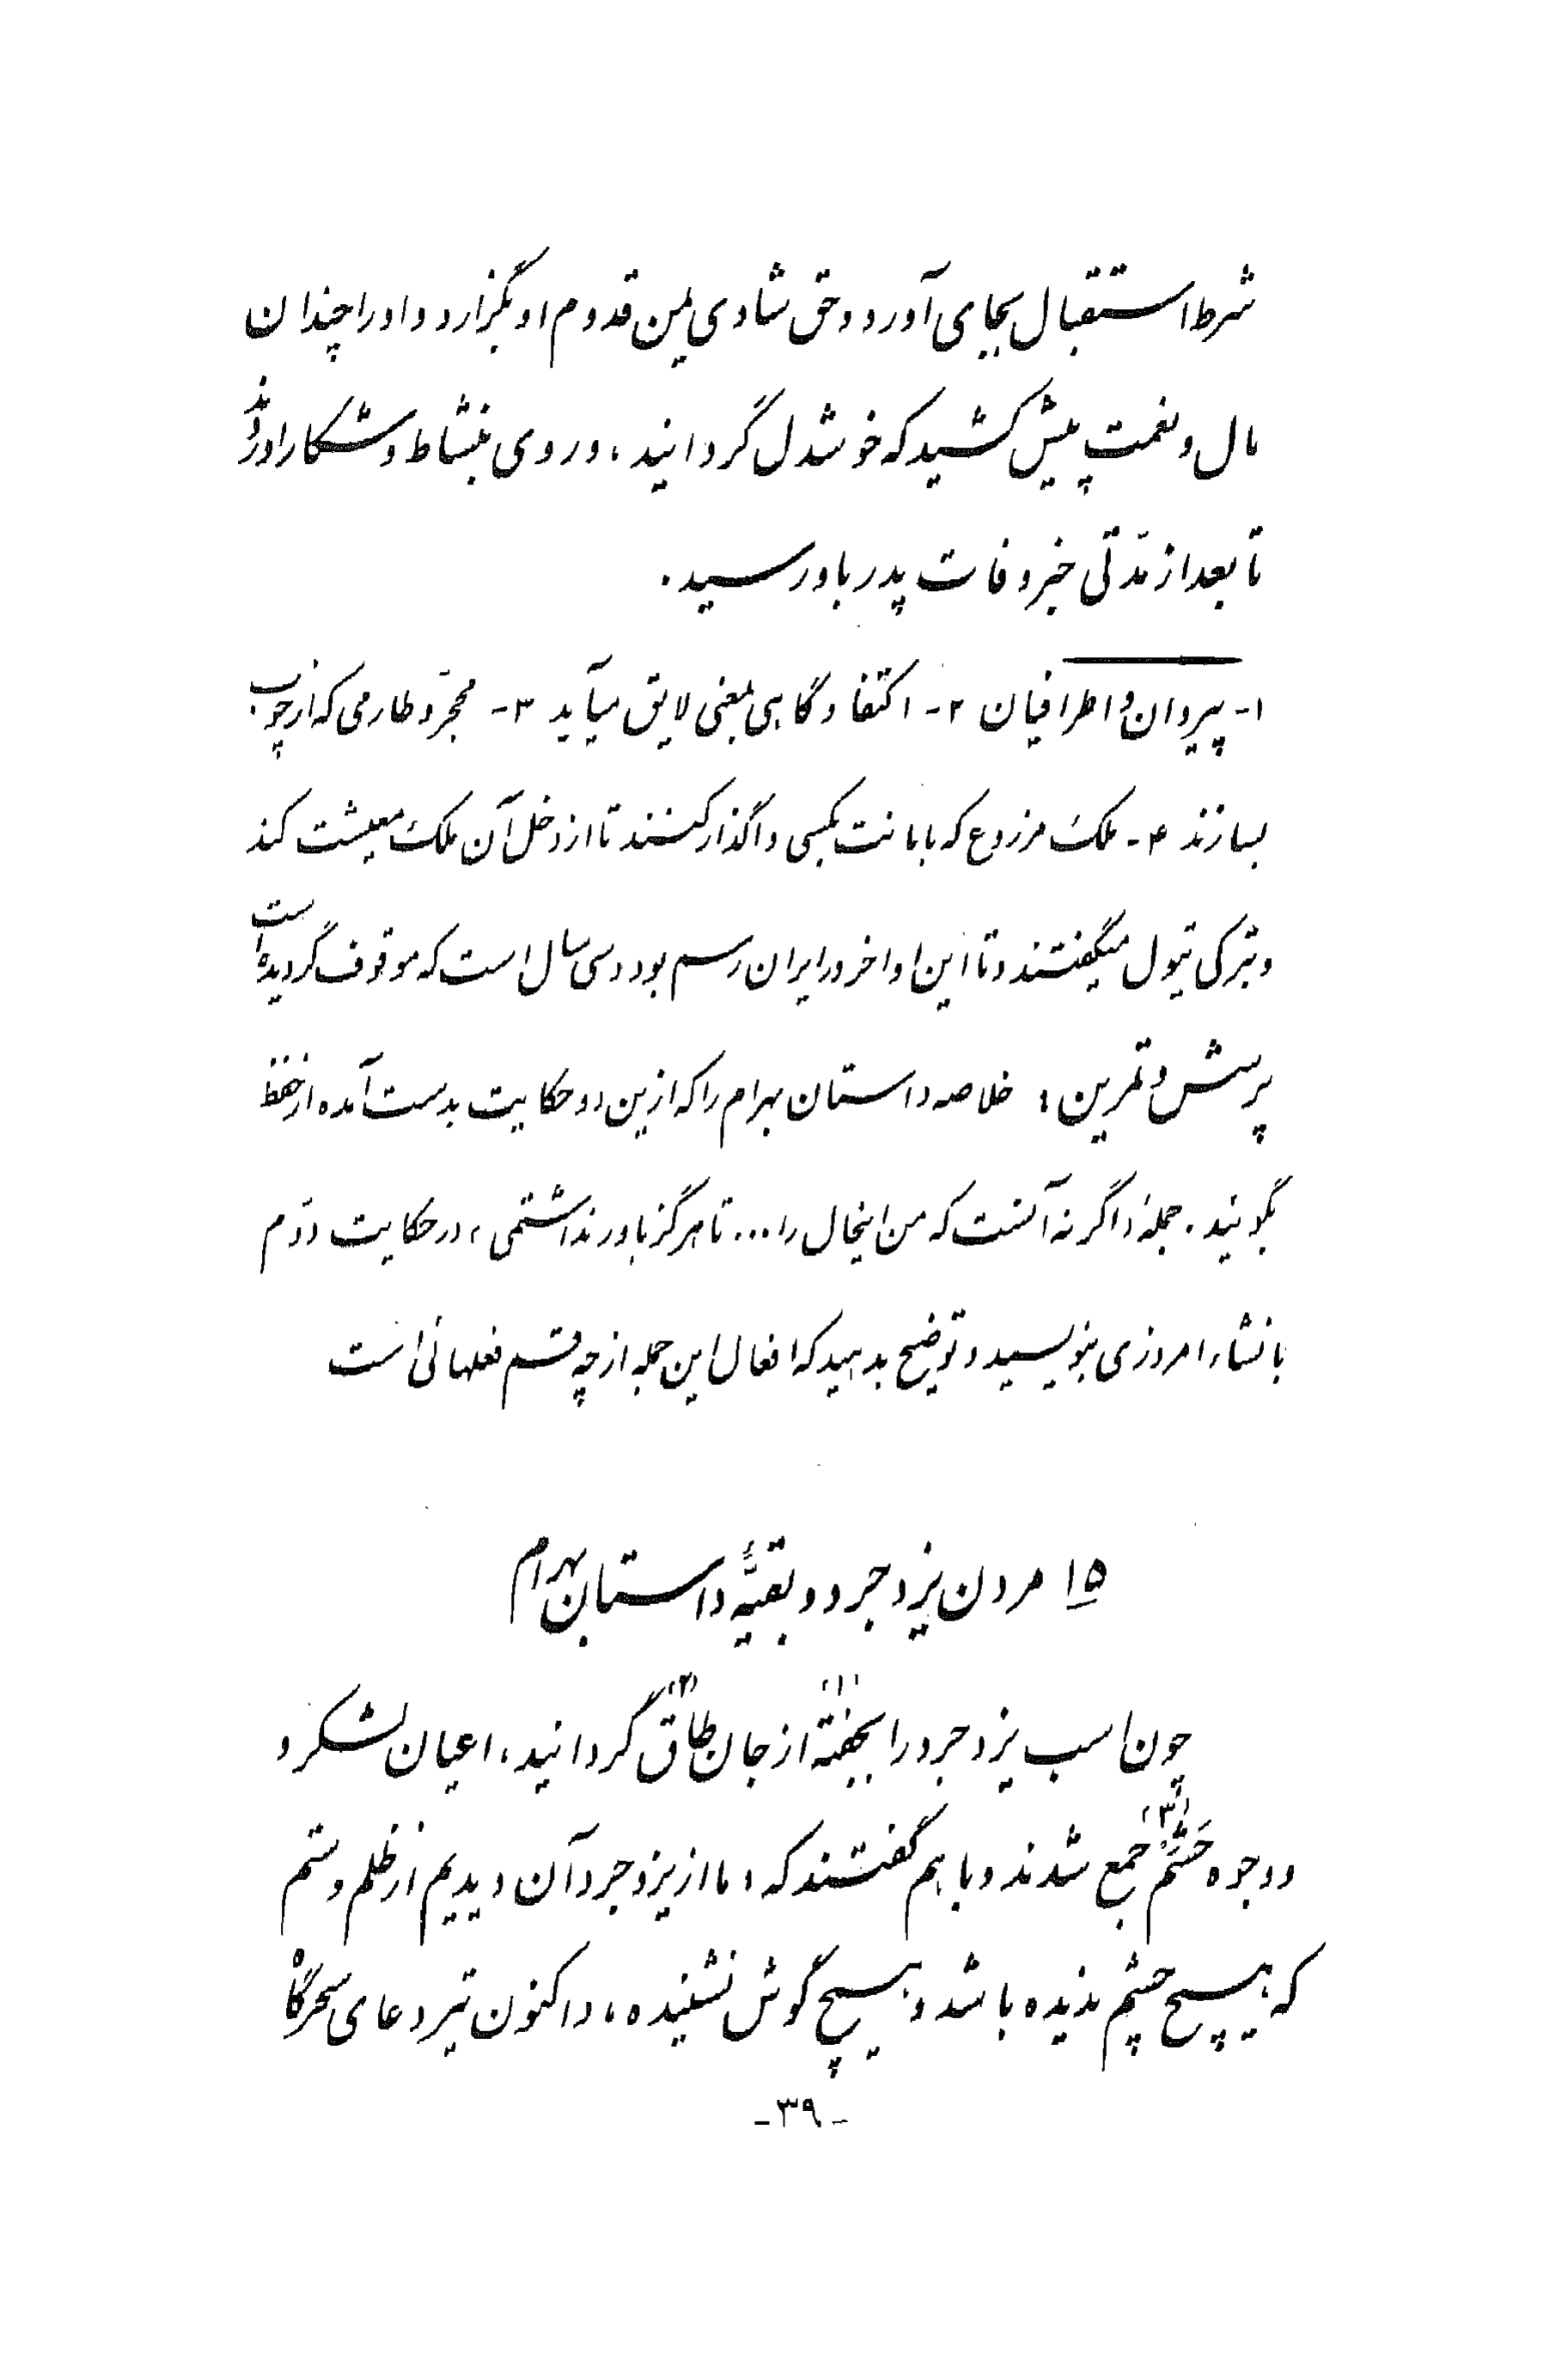 شرط استقبال بجای آورد و حق شادی یمن قدوم او بگزارد و او را چندان
مال و نعمت پیش کشید که خوشدل گردانید، و روی بنشاط و شکار آوردند
تا بعد از مدّتی خبر وفات پدر باو رسید.
۱- پیروان و اطرافیان ۲- اکتفا و گاهی بمعنی لایق میآید ۳- محجّر و طارمی که از چوب
بسازند ۴- ملک مزروع که بامانت بکسی واگذار کنند تا از دخل آن ملک معیشت کند
و بترکی تیول میگفتند و تا این اواخر در ایران رسم بود و سی سال است که موقوف گردیده است
پرسش و تمرین: خلاصه داستان بهرام را که ازین دو حکایت بدست آمده از حفظ
بگوئید. جملهٔ «اگر نه آنست که من اینحال را... تا هرگز باور نداشتمی» در حکایت دوّم
بانشاء امروزی بنویسید و توضیح بدهید که افعال این جمله از چه قسم فعلهائی است
۱۵ مردن یزدجرد و بقیّهٔ داستان بهرام
چون اسب یزدجرد را بجفتهٔ (۱) از جان طاق (۲) گردانید، اعیان لشکر و
و وجوه حَشَم (۳) جمع شدند و با هم گفتند که «ما از یزدجرد آن دیدیم از ظلم و ستم
که هیچ چشم ندیده باشد و هیچ گوش نشنیده، و اکنون تیر دعای سحرگاه
-۳۹-